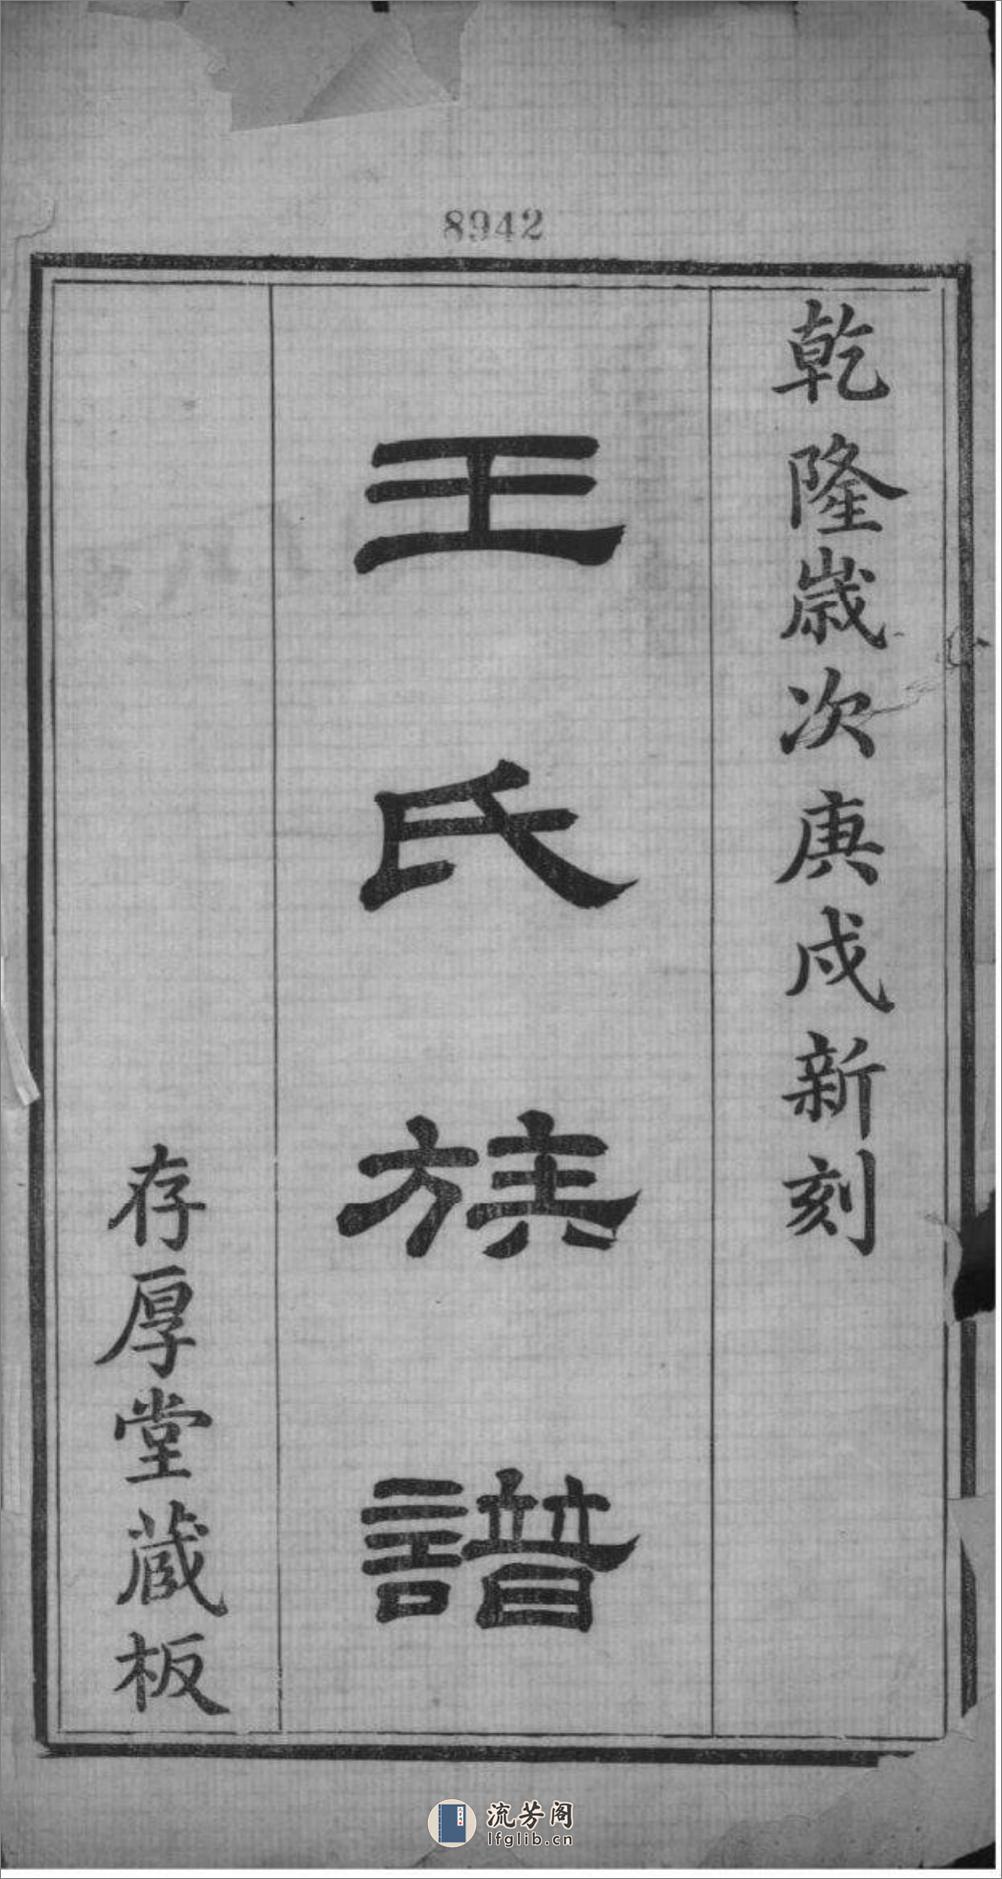 8942
乾隆歲次庚戌新刻
王氏族譜
存厚堂藏板
流芳阁
lfglib.cn